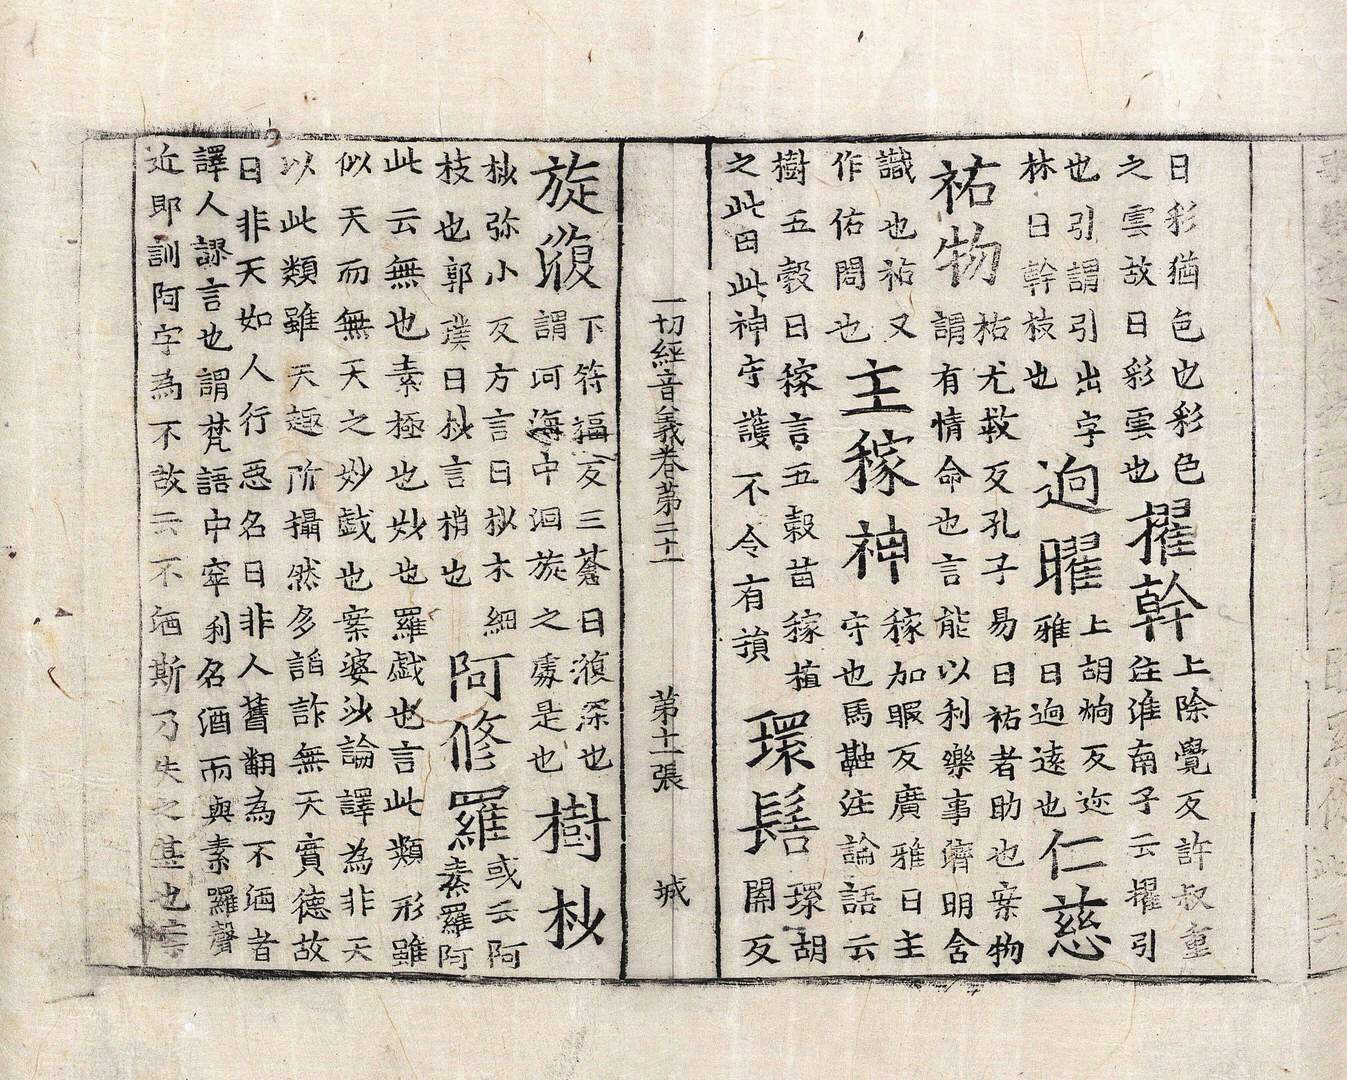 日彩猶色也彩色
之雲故日彩雲也
擢幹
上除覺反許叔重
注淮南子云擢引
也引謂引出字
林曰幹枝也
逈曜
上胡炯反迩
雅曰逈遠也
仁慈
祐物
祐尤救反孔子易曰祐者助也案物
謂有情命也言能以利樂事濟明含
識也祐又
作佑閇也
主稼神
稼加暇反廣雅曰主
守也馬融注論語云
樹五穀曰稼言五穀苗稼植
之此田此神守護不令有損
環髻
環胡
關反
一切經音義卷第二十一 第十一張 城
旋澓
下符福反三蒼曰澓深也
謂河海中洄旋之處是也
樹杪
杪弥小反方言曰杪木細
枝也郭璞曰杪言梢也
阿修羅
或云阿
素羅阿
此云無也素極也妙也羅戲也言此類形雖
似天而無天之妙戲也案婆沙論譯為非天
以此類雖天趣所攝然多諂詐無天實德故
曰非天如人行惡名曰非人舊翻為不酒者
譯人謬言也謂梵語中窣利名酒而與素羅聲
近即訓阿字為不故云不酒斯乃失之甚也